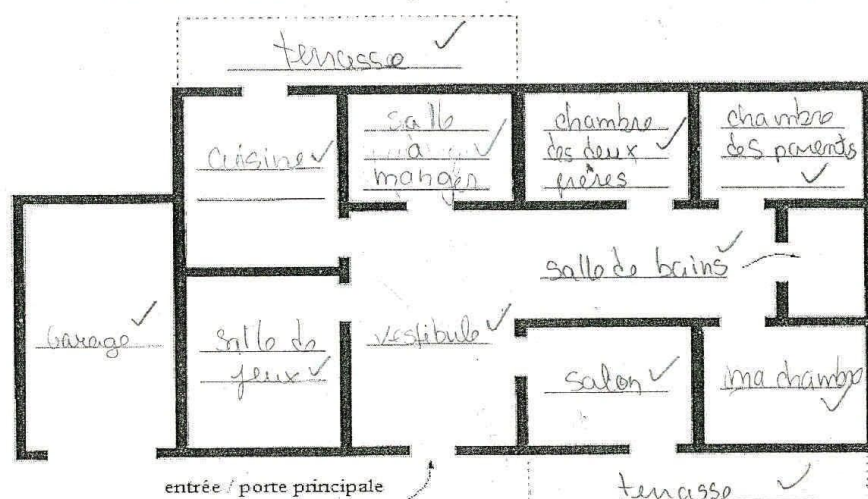 terrasse
cuisine
salle
à
manger
chambre
des deux
frères
chambre
des parents
salle de bains
Garage
salle de
jeux
vestibule
salon
ma chambre
entrée / porte principale
terrasse